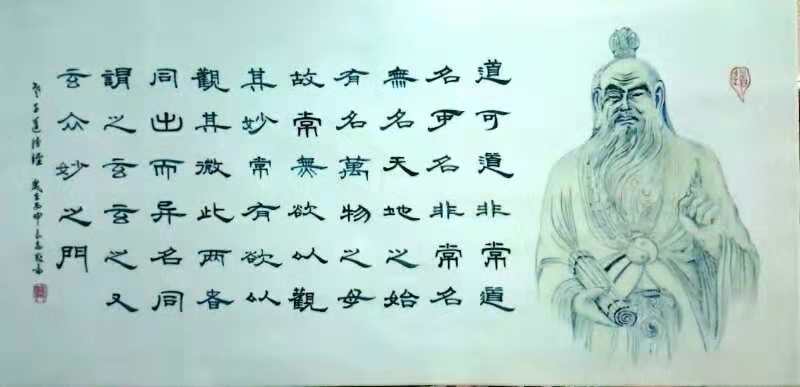 道可道非常道
名可名非常名
無名天地之始
有名萬物之母
故常無欲以觀
其妙常有欲以
觀其微此两者
同出而异名同
謂之玄玄之又
玄众妙之門
老子道德經